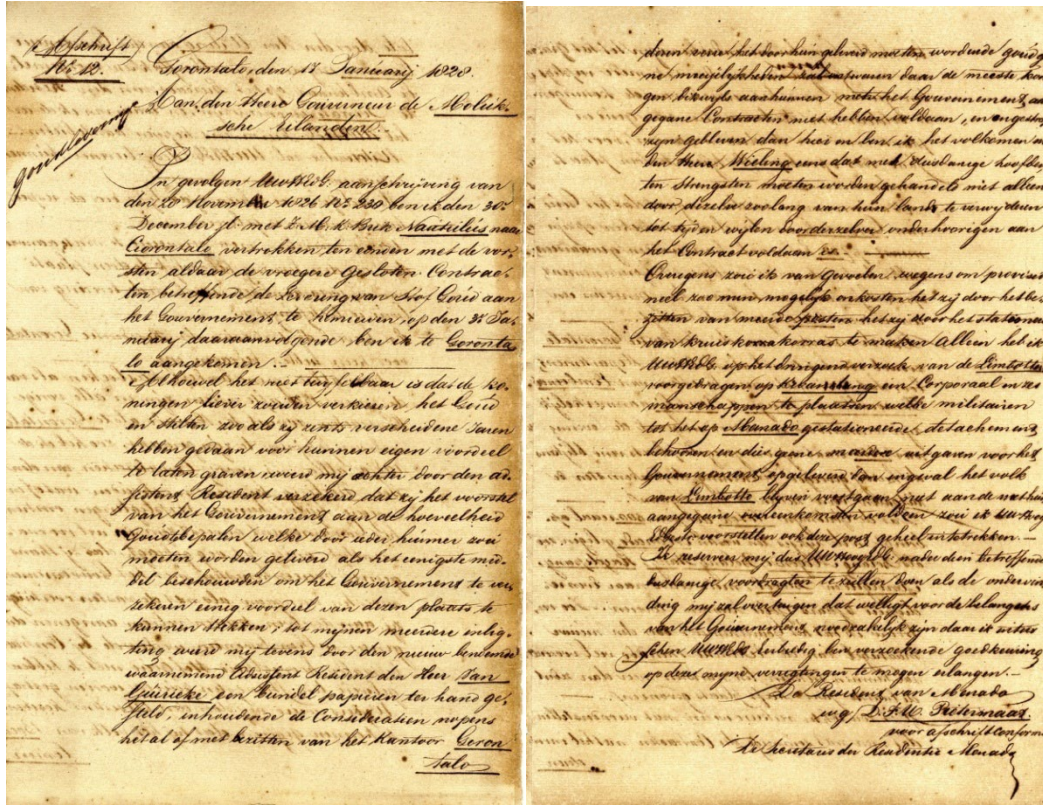 Afschrift
No 12.
Gorontalo, den 17 Januarij 1828.
Aan den Heere Gouverneur de Moluk-
sche Eilanden.
goudlevering
In gevolgen UWHEdG. aanschrijving van
den 20 November 1826 No 239 ben ik den 30n
December jl. met Z. M. Brik Nautilus naar
Gorontalo vertrokken, ten einde met de vor-
sten aldaar de vroegere Gesloten Contrac-
ten betreffende de Levering van Stof Goud aan
het Gouvernement te hernieuwen, op den 3n Ja-
nuarij daaraanvolgende ben ik te Goronta-
lo aangekomen. —
Alhoewel het niet twijfelbaar is dat de Ko-
ningen liever zouden verkiezen het Goud
in stilten zoo als zij zints verscheidene Jaren
hebben gedaan voor hunnen eigen voordeel
te laten graven werd mij echter door den ad-
sistent Resident verzekerd dat zij het voorstel
van het Gouvernement aan de hoeveelheid
Goud te bepalen welke door ieder hunner zou
moeten worden geleverd als het eenigste mid-
del beschouwden om het Gouvernement te ver-
zekeren eenig voordeel van dezen plaats te
kunnen trekken, tot mijnen meerdere inlig-
ting werd mij tevens door den nieuw benoemde
waarnemend Adsistent Resident den Heer Van
Guericke een bundel papieren ter hand ge-
steld, inhoudende de Consideratien nopens
het al of niet bezitten van het Kantoor Goron
talo
deren voor het door hun geleverd moeten wordende goud g
ne moeijelijkheden zal ontwaren daar de meeste kon
gen bizwijls aan hunnen met het Gouvernement aa
gegane Contracten niet hebben voldaan, en ongestra
zijn gebleven dan hier en ben ik het volkomen m
den Heer Wieling eens dat met dusdanige hoofden
ten strengsten moeten worden gehandeld niet alleen
door dezelve zoolang van hun lands te verwijderen
tot tijd en wijlen door derzelver onderhoorigen aan
het Contract voldaan is. —
Overigens zou ik van gevoelen wezen om provisio
neel zoo min mogelijk onkosten het zij door het be-
zetten van meerdere posten het zij door het station
van kruiskorrakorras te maken Alleen heb ik
UWHEdG op het dringens verzoek van de Limbotters
voorgedragen op een Corporaal en zes
manschappen te plaatsen welke militairen
tot het op Manado gestationeerde detachement
behooren en dus geene uitgaven voor het
Gouvernement opgeleverd dan ingeval het volk
van Limbotto blijven voortgaan niet aan de met hun
aangegane overeenkomsten voldoen zou ik UWHoog
EdG voorstellen ook deze post geheel intetrekken. —
Ik reserveer mij dus UWHoogEdG nader dien betreffende
dusdanige voordragten te zullen doen als de ondervin
ding mij zal overtuigen dat welligt voor de belangens
van het Gouvernement noodzakelijk zijn daar ik
UWHEdG eerbiedig ben verzoekende goedkeuring
op deze mijne verrigtingen te mogen erlangen. —
De Resident van Menado
w.g. D. F. W. Pietermaat
voor afschrift conform
De Secretaris der Residentie Menado